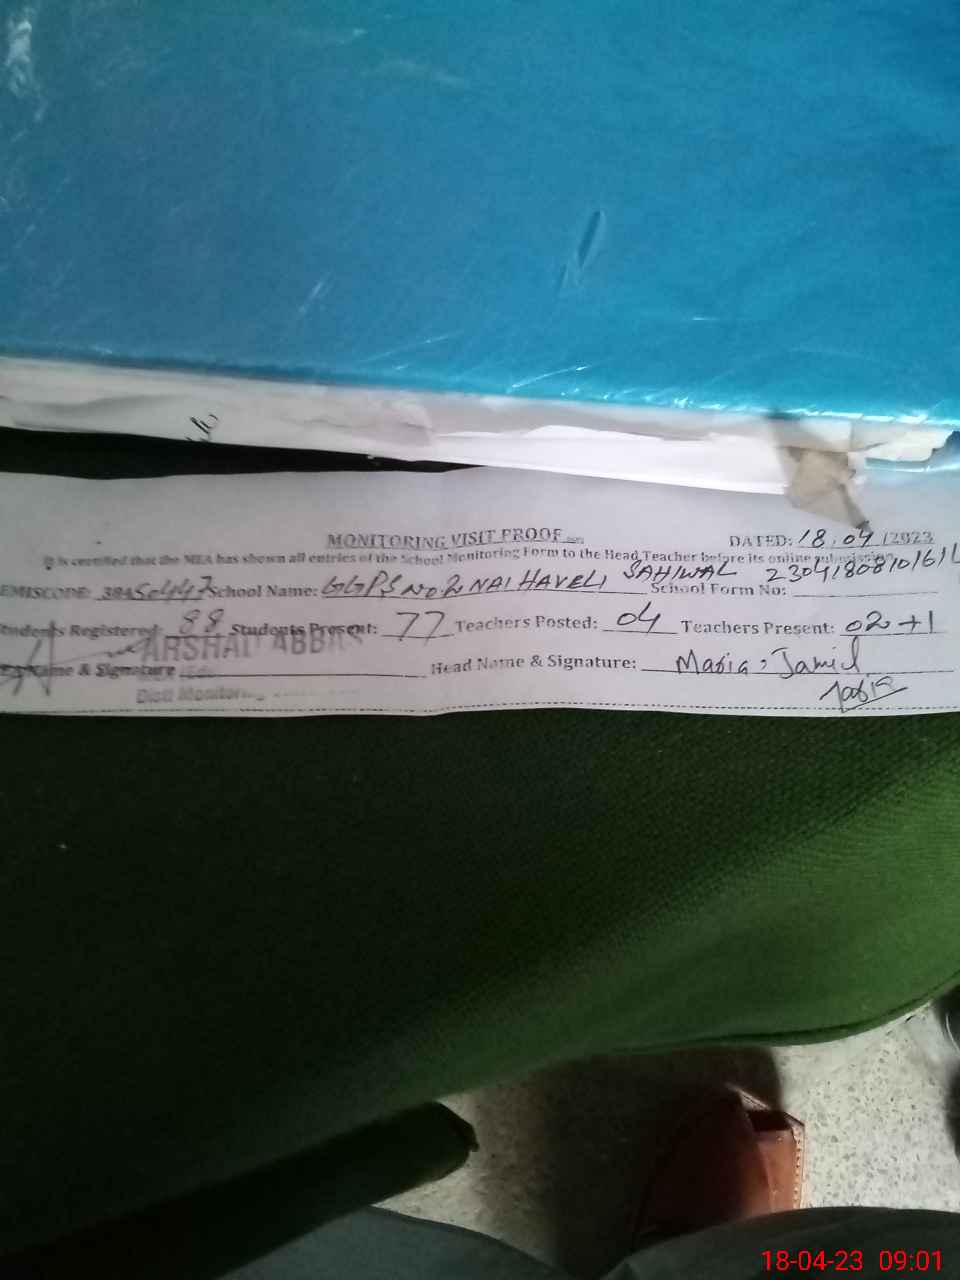 MONITORING VISIT PROOF
DATED: 18.04/2023
It is certified that the MEA has shown all entries of the School Monitoring Form to the Head Teacher before its online submission
EMISCODE: 384 School Name: GGPS NO 2 NAI HAVELI SAHIWAL School Form No:
Students Registered 88 Students Present: 77 Teachers Posted: 04 Teachers Present: 02+1
ARSHAD ABBAS
Name & Signature Head Name & Signature: Maria Jamil
Distt Monitoring
18-04-23 09:01